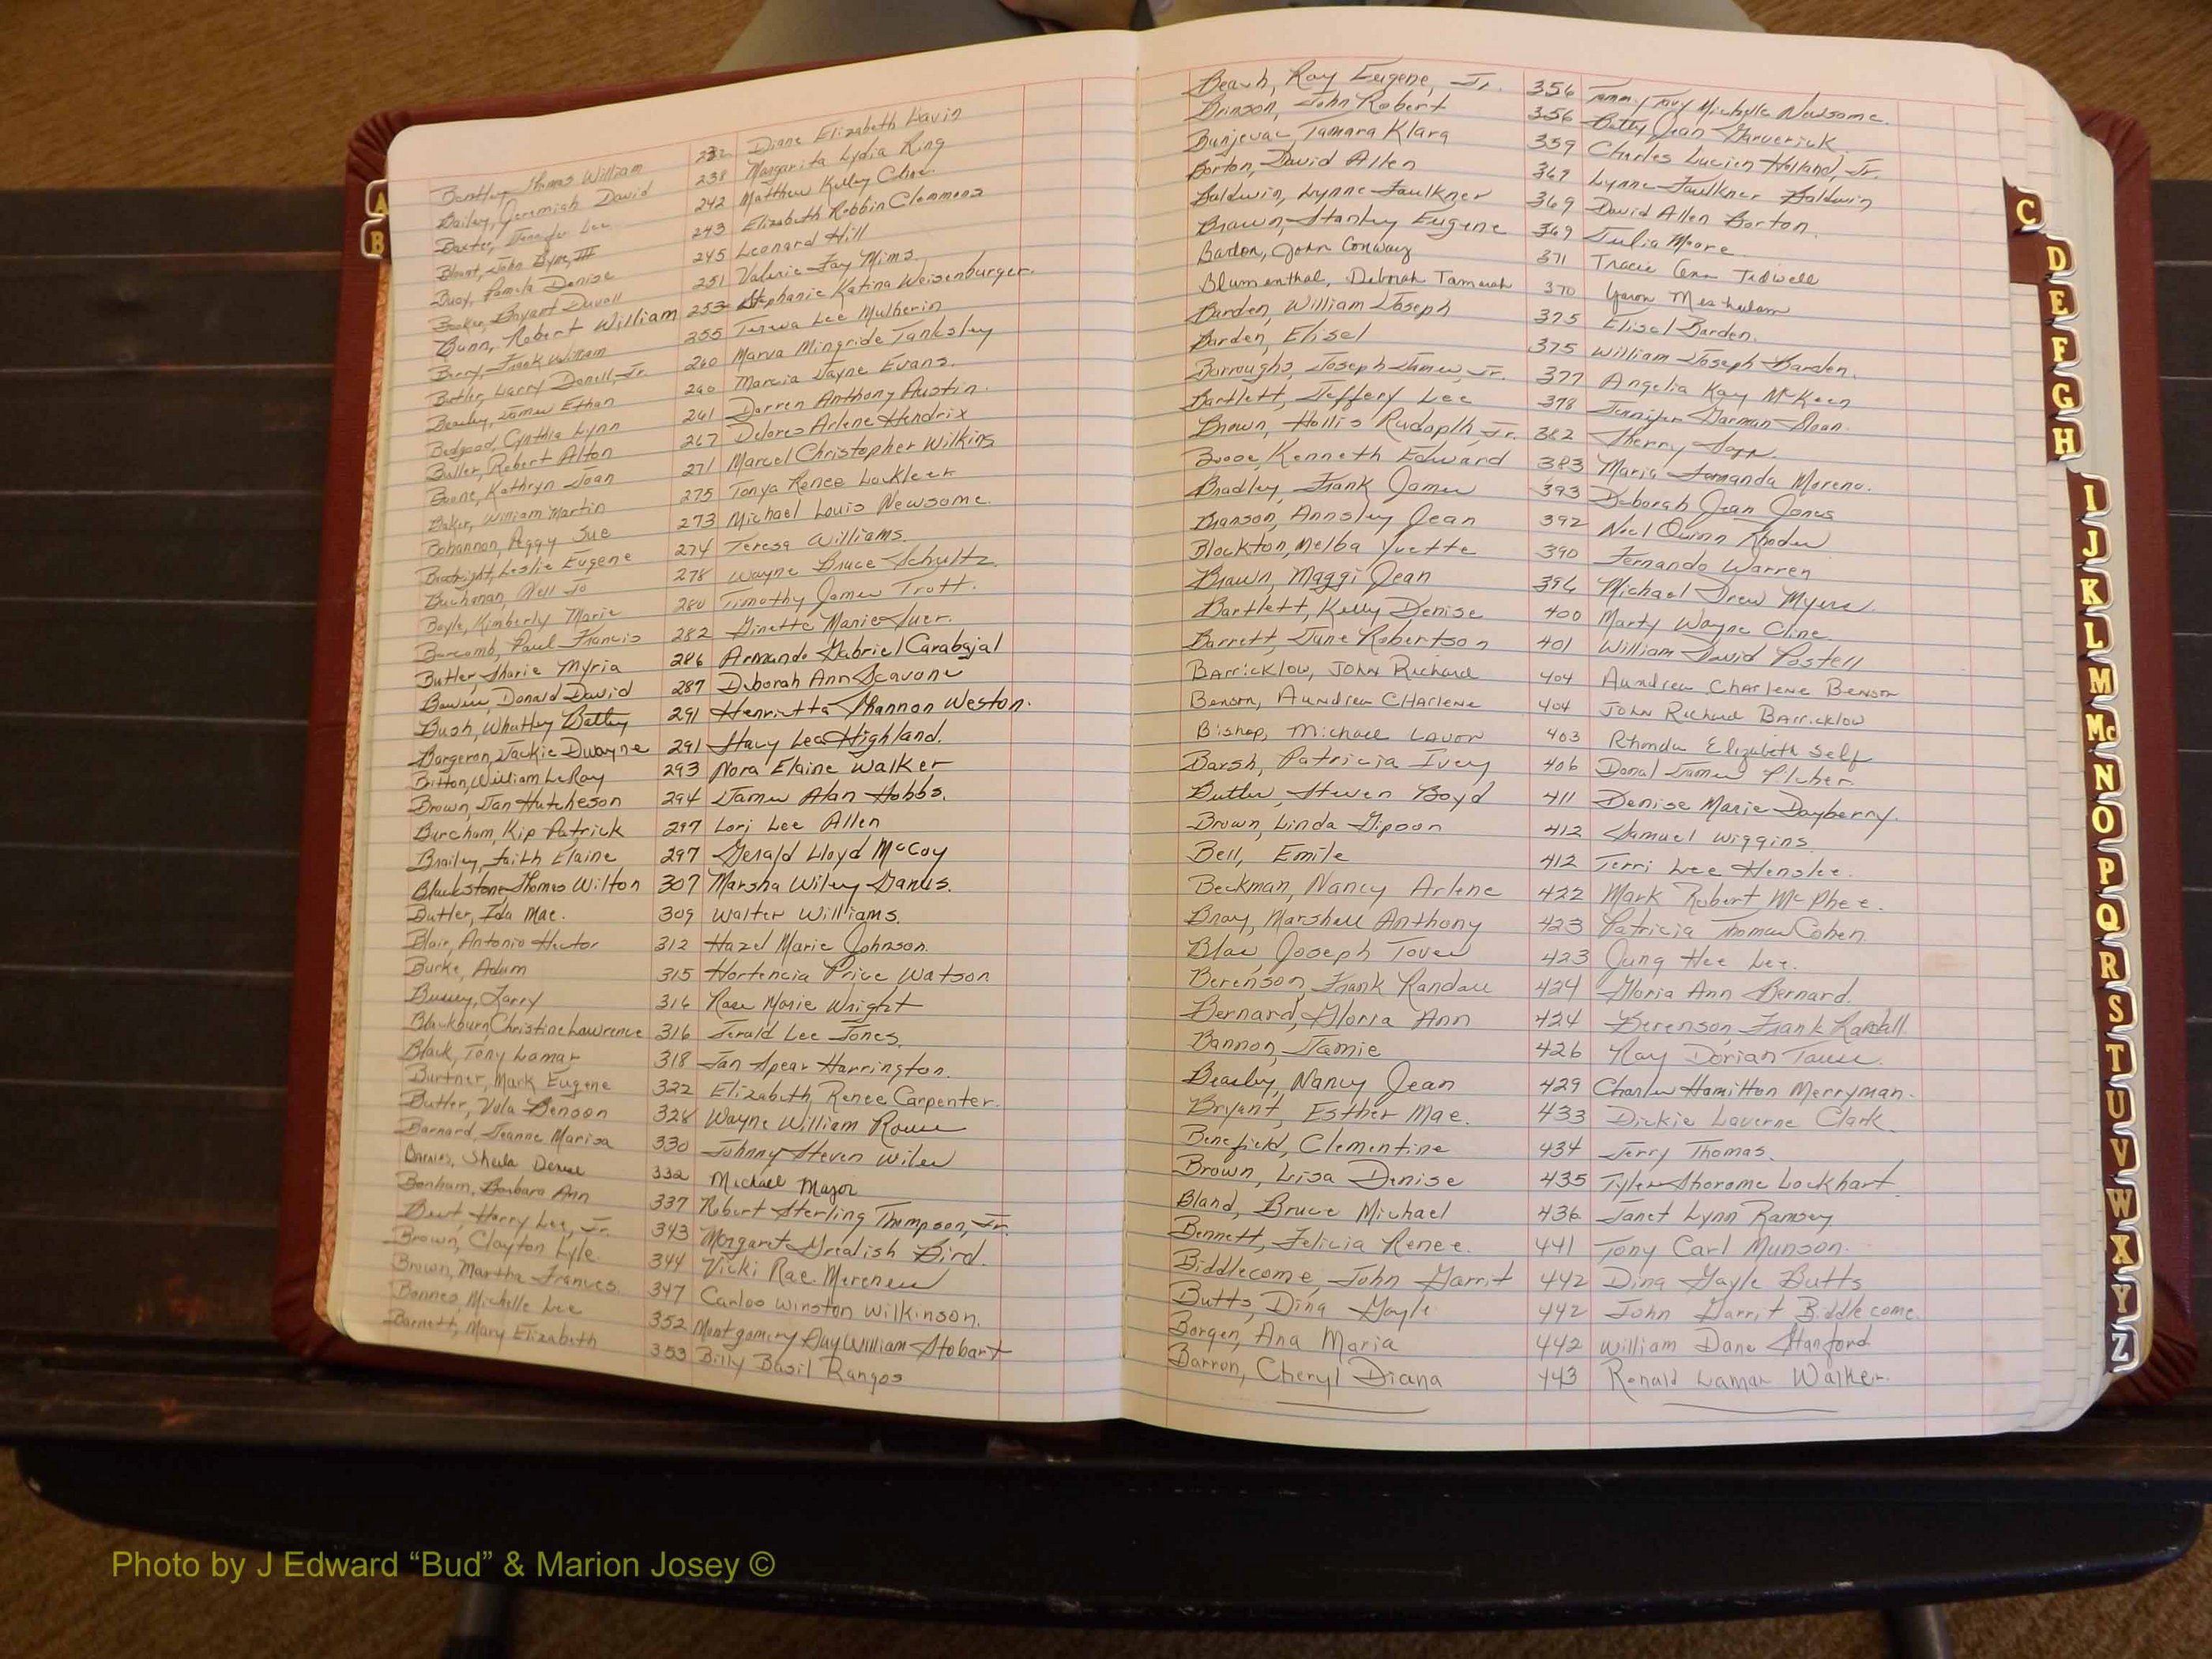 Bentley, Thomas William 232 Diane Elizabeth Lavin
Bailey, Jeremiah David 238 Margarita Lydia Ring
Baxter, Jennifer Lee 242 Matthew Kelley
Blount, John Byne, III 243 Elizabeth Robbin Clemmons
Buoy, Pamela Denise 245 Leonard Hill
Booker, Bryant Duvall 251 Valerie Fay Mims
Bunn, Robert William 253 Stephanie Katina Weisenburger.
Berry, Frank William 255 Teresa Lee Mulherin
Butler, Larry Donell, Jr. 260 Marva Mingride Tanksley
Beasley, James Ethan 260 Marcia Jayne Evans.
Bedgood Cynthia Lynn 261 Darren Anthony Austin.
Buller, Robert Alton 267 Delores Arlene Hendrix
Boone, Kathryn Joan 271 Marcel Christopher Wilkins
Baker, William Martin 275 Tonya Renee Lockleer
Bohannon, Peggy Sue 273 Michael Louis Newsome.
Boatright, Leslie Eugene 274 Teresa Williams.
Buchanan, Nell Jo 278 Wayne Bruce Schultz.
Boyle, Kimberly Marie 280 Timothy James Trott.
Burcomb, Paul Francis 282 Ginette Marie Suer.
Butler, Sharie Myria 286 Armando Gabriel Carabajal
Bowen, Donald David 287 Deborah Ann Scavone
Bush, Whatley Battey 291 Henrietta Shannon Weston.
Bargeron, Jackie Dwayne 291 Stacy Lee Highland.
Britton, William LeRoy 293 Nora Elaine Walker
Brown, Jan Hutcheson 294 James Alan Hobbs.
Burcham, Kip Patrick 297 Lori Lee Allen
Brailey, Faith Elaine 297 Gerald Lloyd McCoy
Blackstone, Thomas Wilton 307 Marsha Wiley Ganus.
Butler, Ida Mae. 309 Walter Williams.
Blair, Antonio Hector 312 Hazel Marie Johnson.
Burke, Adam 315 Hortencia Price Watson
Bussey, Larry 316 Rose Marie Wright
Blackburn, Christine Lawrence 316 Jerald Lee Jones.
Black, Tony Lamar 318 Jan Spear Harrington.
Burtner, Mark Eugene 322 Elizabeth Renee Carpenter.
Butler, Vola Benson 328 Wayne William Rouse
Barnard, Jeanne Marisa 330 Johnny Steven Wiles
Barnes, Sheila Denise 332 Michael Major
Bonham, Barbara Ann 337 Robert Sterling Thompson, Jr.
Bert, Harry Lee, Jr. 343 Margaret Grealish Bird.
Brown, Clayton Lyle 344 Vicki Rae Merenew
Brown, Martha Frances. 347 Carlos Winston Wilkinson.
Bonnes, Michelle Lee 352 Montgomery Gay William Stobart
Barnett, Mary Elizabeth 353 Billy Basil Rangos
Beach, Ray Eugene, Jr. 356 Tammy Michelle Newsome.
Brinson, John Robert 356 Betty Jean Garverick.
Bunjevac Tamara Klara 359 Charles Lucien Holland, Jr.
Borton, David Allen 369 Lynne Faulkner Baldwin
Baldwin, Lynne Faulkner 369 David Allen Borton.
Brown, Stanley Eugene 369 Julia Moore.
Bardon, John Conway 371 Tracie Tidwell
Blumenthal, Deborah Tamarah 370 Yaron Meshulam
Barden, William Joseph 375 Elisel Barden.
Barden, Elisel 375 William Joseph Barden.
Burroughs, Joseph James, Jr. 377 Angelia Kay McKeen
Bartlett, Jeffery Lee 378 Jennifer Garman Sloan.
Brown, Hollis Rudoplh, Jr. 382 Sherry Sapp
Buooe, Kenneth Edward 383 Maria Fernanda Moreno.
Bradley, Frank James 393 Deborah Jean Jones
Branson, Annsley Jean 392 Noel Quinn Rhoden
Blockton, Melba Yvette 390 Fernando Warren
Brown, Maggi Jean 396 Michael Drew Myers
Bartlett, Kelly Denise 400 Marty Wayne Cline
Barrett, June Robertson 401 William David Postell
Barricklow, John Richard 404 Aundrea Charlene Benson
Benson, Aundrea Charlene 404 John Richard Barricklow
Bishop, Michael Lavon 403 Rhonda Elizabeth Self
Barsh, Patricia Ivey 406 Donal James Plcher
Butler, Steven Boyd 411 Denise Marie Dayberry.
Brown, Linda Gipson 412 Samuel Wiggins.
Bell, Emile 412 Terri Lee Henslee.
Beckman, Nancy Arlene 422 Mark Robert McPhee.
Bray, Marshall Anthony 423 Patricia Thomas Cohen.
Blas, Joseph Toves 423 Jung Hee Lee.
Berenson, Frank Randall 424 Gloria Ann Bernard.
Bernard, Gloria Ann 424 Berenson, Frank Randall
Bannon, Jamie 426 Ray Dorian Tause.
Beasley, Nancy Jean 429 Charles Hamilton Merryman.
Bryant, Esther Mae. 433 Dickie Laverne Clark.
Benefield, Clementine 434 Jerry Thomas.
Brown, Lisa Denise 435 Tyler Shorome Lockhart.
Bland, Bruce Michael 436 Janet Lynn Ramsey
Bennett, Felicia Renee. 441 Tony Carl Munson.
Biddlecome, John Garrit 442 Dina Gayle Butts
Butts, Dina Gayle 442 John Garrit Biddlecome.
Borgen, Ana Maria 442 William Dane Stanford
Barron, Cheryl Diana 443 Ronald Lamar Walker.
A
B
C
D
E
F
G
H
I
J
K
L
M
Mc
N
O
P
Q
R
S
T
U
V
W
X
Y
Z
Photo by J Edward “Bud” & Marion Josey ©